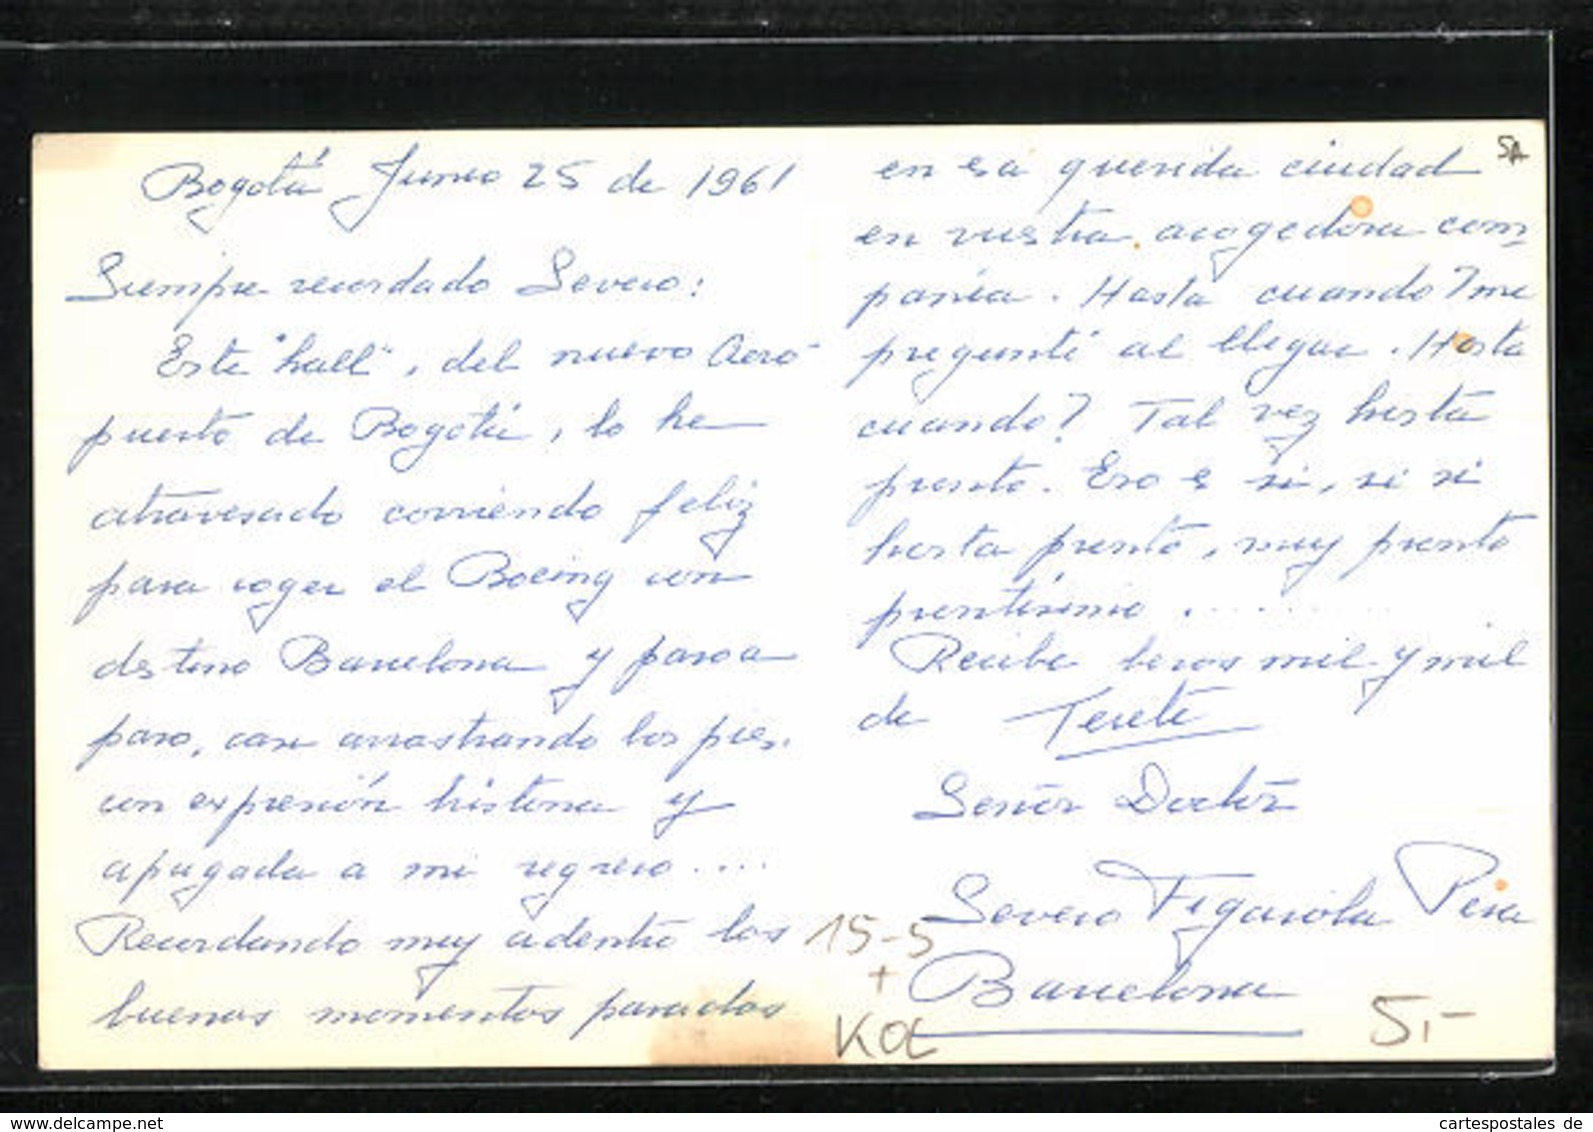 Bogotá Junio 25 de 1961
Siempre recordado Severo:
Este "hall", del nuevo Aero-
puerto de Bogotá, lo he
atravesado corriendo feliz
para coger el Boeing con
destino Barcelona y paso a
paso, casi arrastrando los pies,
con expresión histona y
apagada a mi regreso....
Recordando muy adentro los
buenos momentos pasados
en esa querida ciudad
en vuestra acogedora com-
pañia. Hasta cuando? me
pregunté al llegar. Hasta
cuando? Tal vez hasta
pronto. Eso es si, si si
hasta pronto, muy pronto
prontísimo..........
Recibe besos mil y mil
de Tereté
Señor Doctor
Severo Figarola Pera
Barcelona
SA
15-5
+
Kol
5,-
delcampe.net
cartespostales de